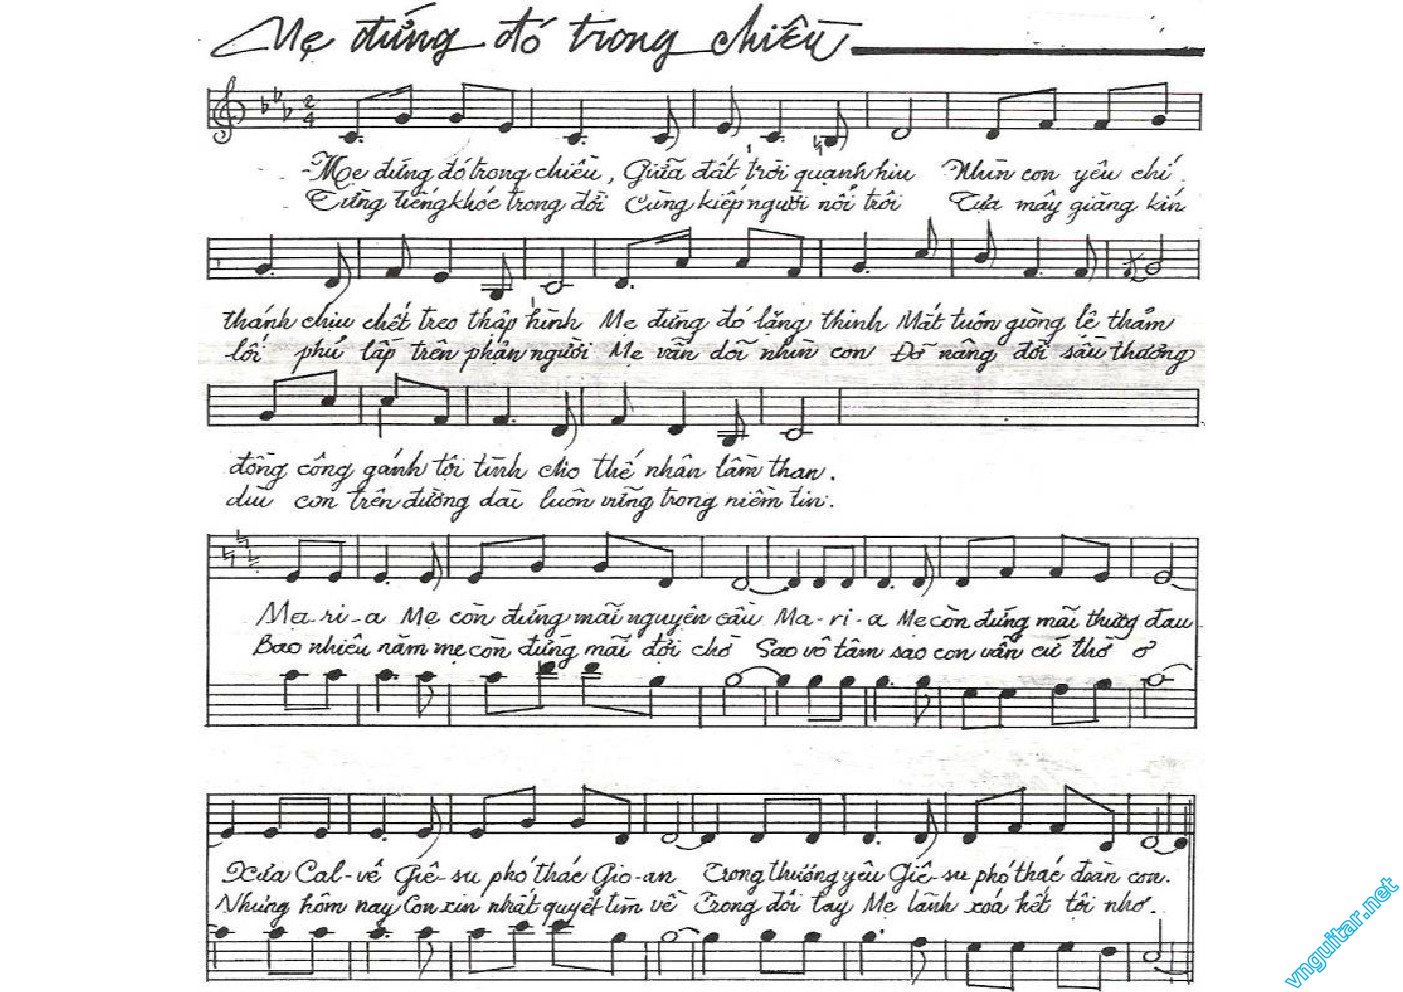 Mẹ đứng đó trong chiều
2
4
Mẹ đứng đó trong chiều, Giữa đất trời quạnh hiu Nhìn con yêu chí
Từng tiếng khóc trong đời Cùng kiếp người nổi trôi Tựa mây giăng kín
thánh chịu chết treo thập hình Mẹ đứng đó lặng thinh Mắt tuôn giòng lệ thắm
lối phủ lấp trên phận người Mẹ vẫn dõi nhìn con Đỡ nâng đời sầu thương
đồng công gánh tội tình cho thế nhân lầm than.
dìu con trên đường dài luôn vững trong niềm tin.
Ma-ri-a Mẹ còn đứng mãi nguyện cầu Ma-ri-a Mẹ còn đứng mãi thương đau
Bao nhiêu năm mẹ còn đứng mãi đợi chờ Sao vô tâm sao con vẫn cứ thờ ơ
Xưa Cal-vê Giê-su phó thác Gio-an Trong thương yêu Giê-su phó thác đoàn con.
Nhưng hôm nay Con xin nhất quyết tìm về Trong đôi tay Mẹ lành xoá hết tội nhơ.
vnguitar.net